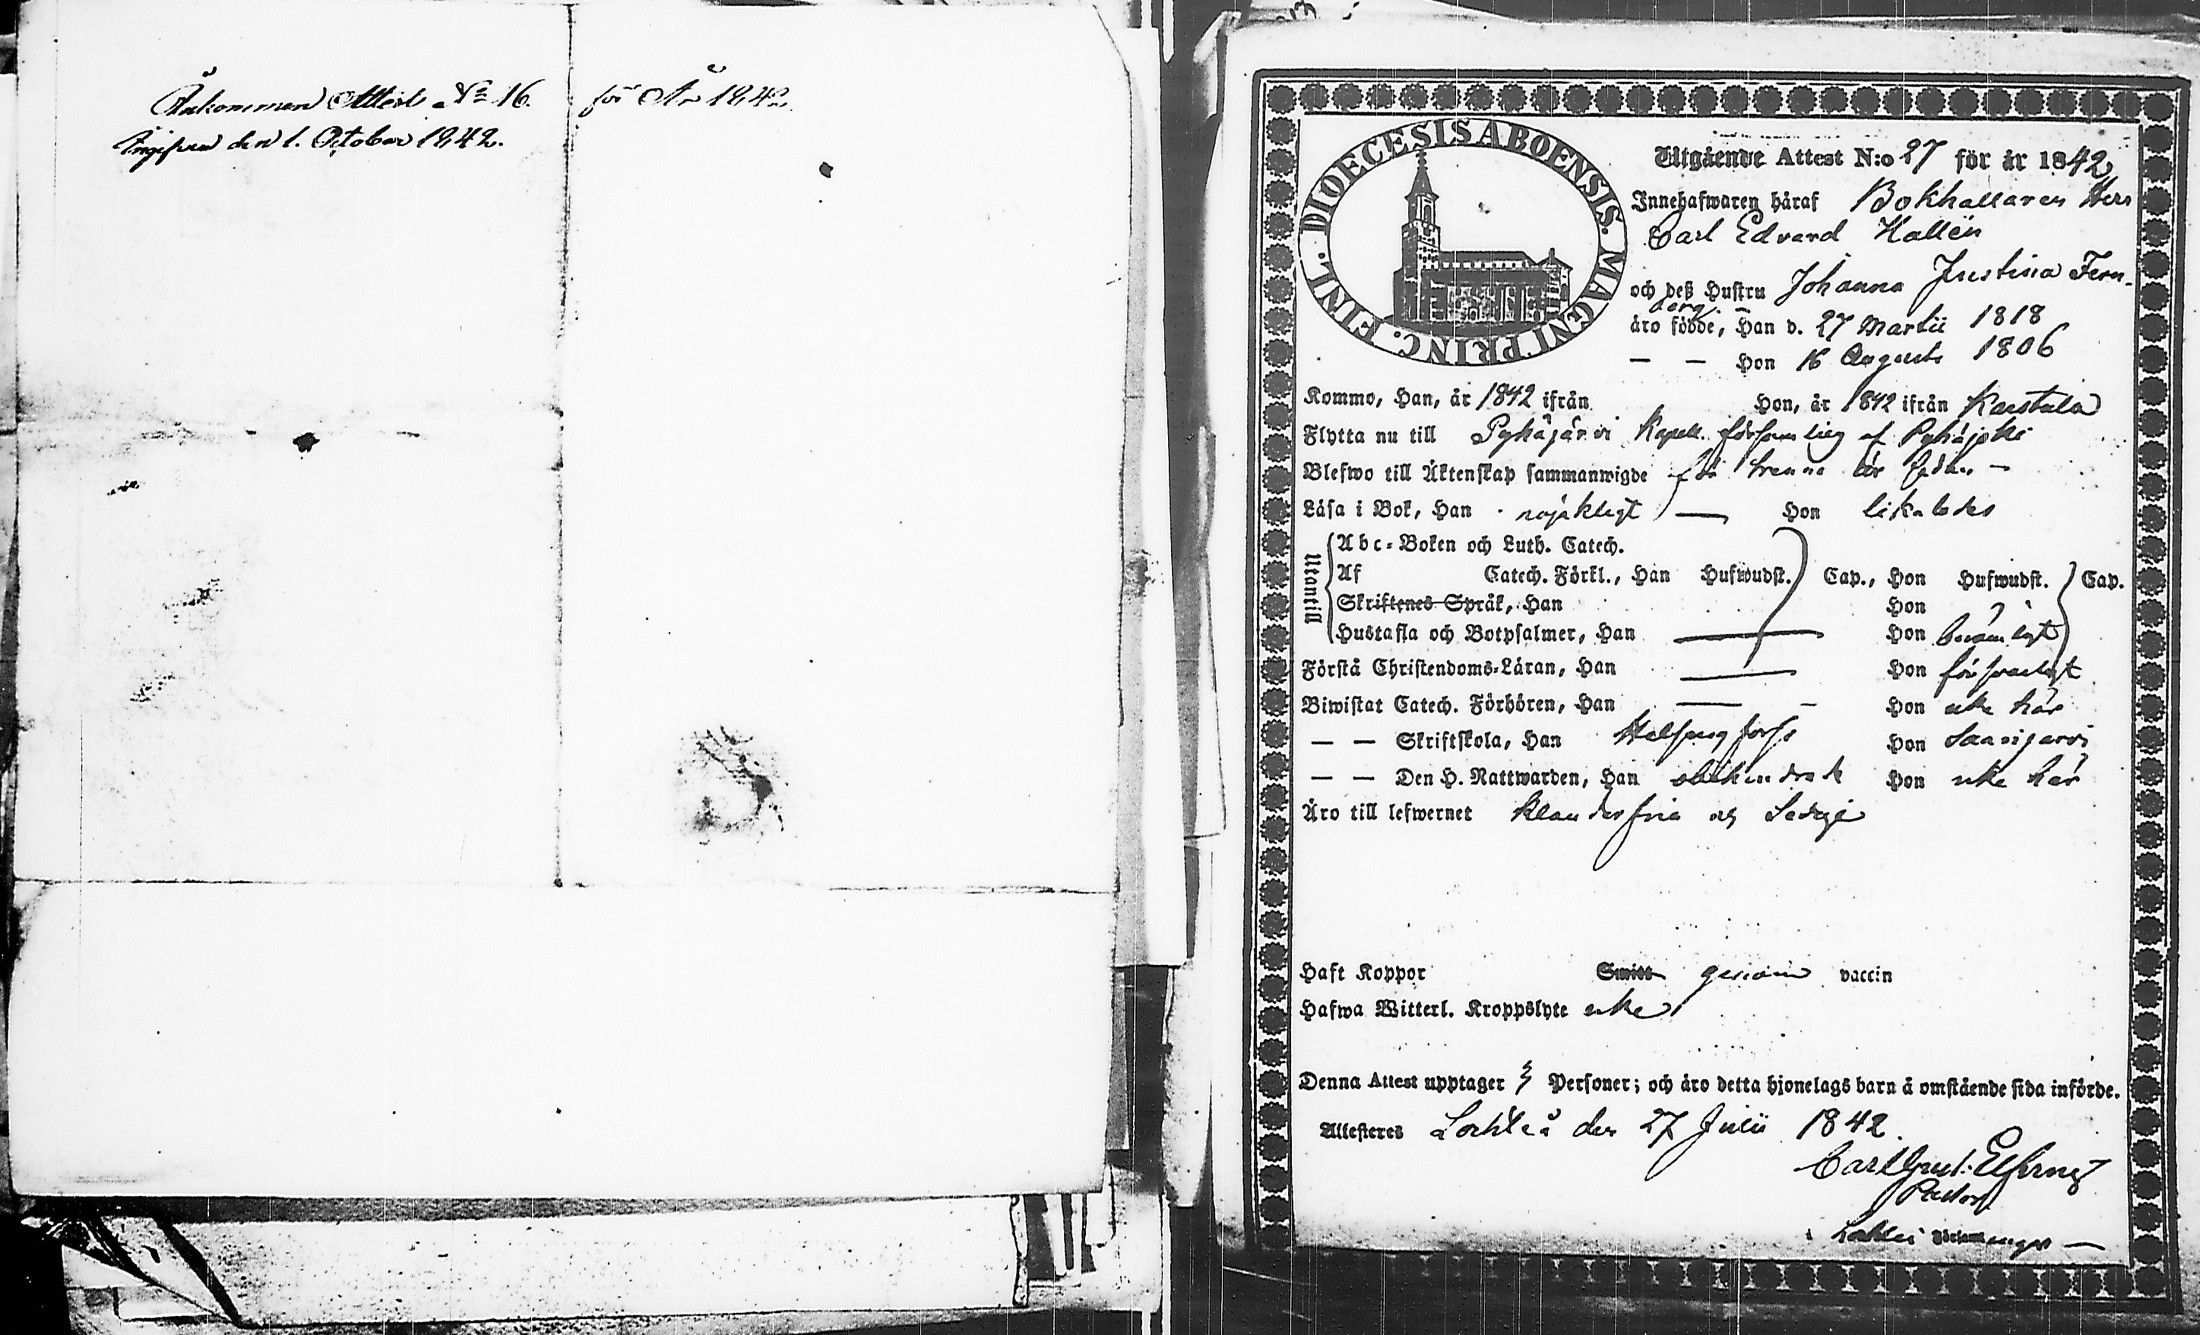 Ankommen Attest No 16. för År 1842.
Ingifven den 1. October 1842.
DIOECESIS ABOENSIS. MAGNI PRINC. FINL.
Utgående Attest N:o 27 för år 1842
Innehafwaren häraf Bokhallaren Herr
Carl Edvard Hallén
och deß Hustru Johanna Justina Fern-
berg
äro födde, Han d. 27 Martii 1818
— — Hon 16 Augusti 1806
Kommo, Han, år 1842 ifrån Hon, år 1842 ifrån Karstula
Flytta nu till Pyhäjärvi Kapell församling af Pyhäjoki
Blefwo till Äktenskap sammanwigde för trenne år sedan —
Läsa i Bok, Han nöjaktigt — Hon likaledes
Utantill
Abc-Boken och Luth. Catech.
Af Catech. Förkl., Han Hufwudst. Cap., Hon Hufwudst. Cap.
Skriftenes Språk, Han Hon
Hustafla och Botpsalmer, Han — Hon berömligt
Förstå Christendoms-Läran, Han — Hon försvarligt
Biwistat Catech. Förhören, Han — - Hon icke här
— — Skriftskola, Han Helsingfors Hon Saarijärvi
— — Den H. Nattwarden, Han obehindrad Hon icke här
Äro till lefwernet klanderfria och Sedige
Haft Koppor Smitt genom vaccin
Hafwa Witterl. Kroppslyte icke
Denna Attest upptager Personer; och äro detta hjonelags barn å omstående sida införde.
Attesteres Lochteå den 27 Julii 1842.
Carl Gust. Elfving
Pastor